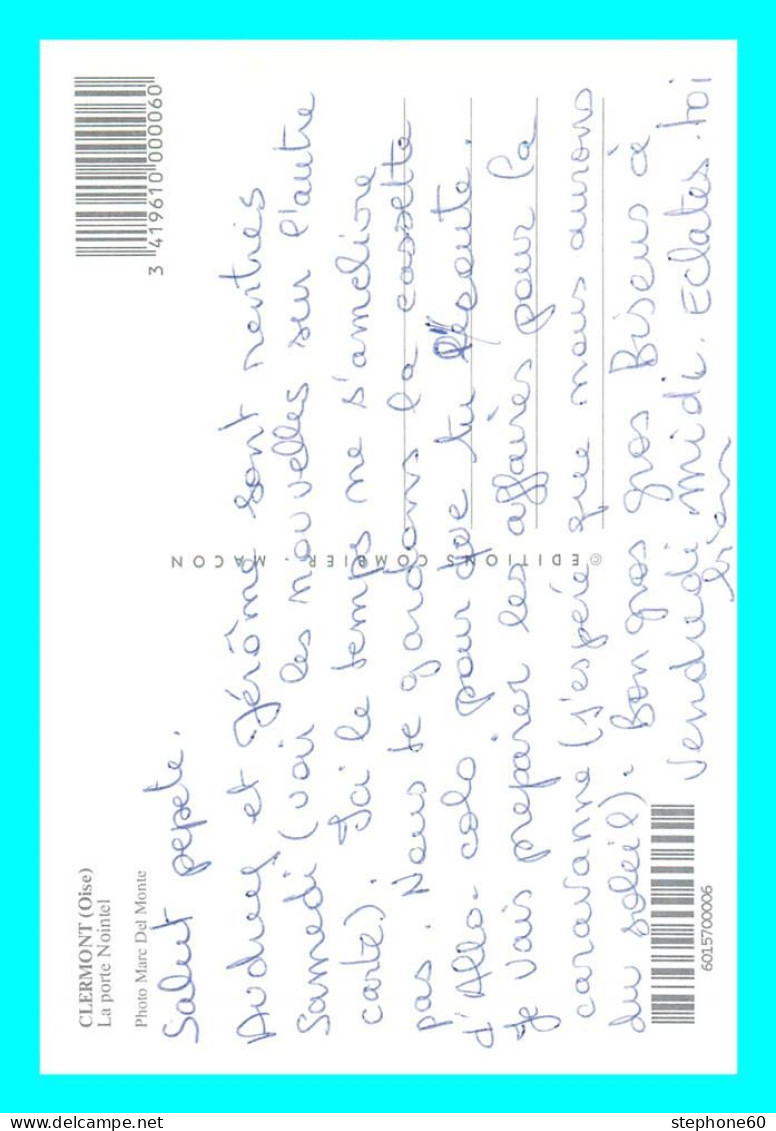 CLERMONT (Oise)
La porte Nointel
Photo Marc Del Monte
3 419610 000060
Salut pepete.
Audrey et Jérôme sont rentrés
Samedi (voir les nouvelles sur l'autre
carte). Ici le temps ne s'améliore
pas. Nous te gardons la cassette
d'Allo-colo pour que tu l'écoute.
Je vais préparer les affaires pour la
caravanne (j'espère que nous aurons
du soleil). Bon gros gros Bisous à
Vendredi Midi. Eclates-toi
bien
© EDITIONS COMBIER - MACON
6015700006
stephone60